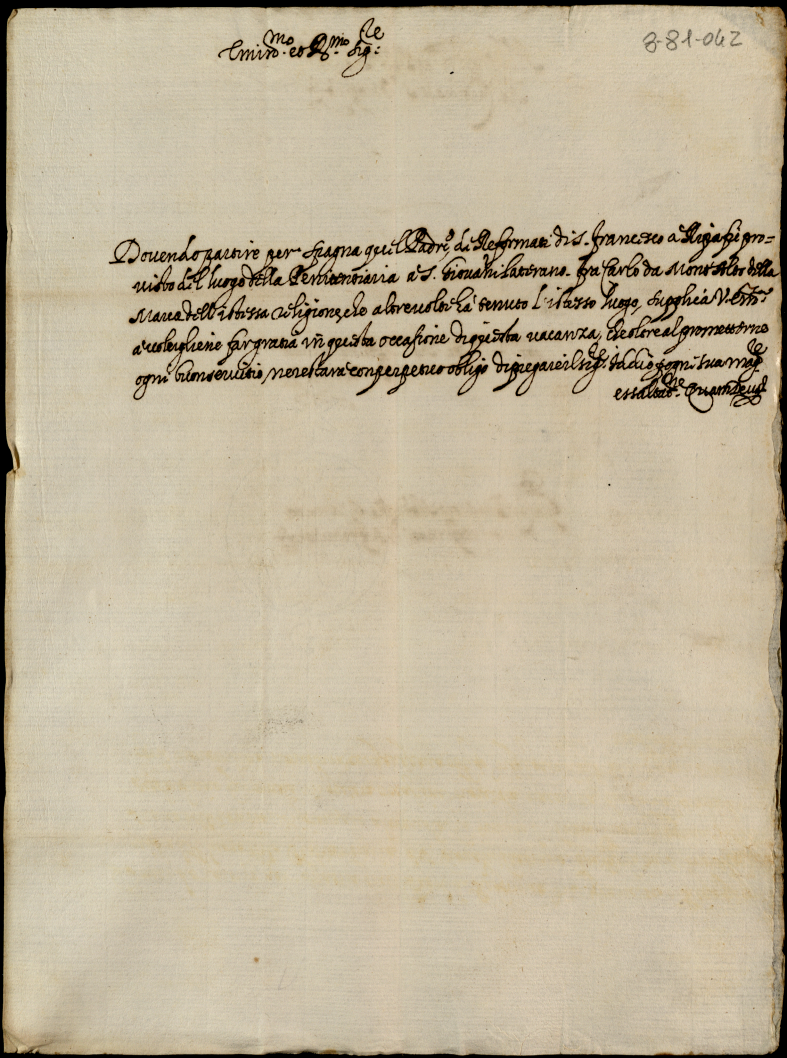 8-81-042
Emin.mo et R.mo Sig.re
Dovendo partire per Spagna quel Padre, de Reformati di S. Francesco a Ripa pro=
visto del luogo della Penitentiaria a S. Giovani Laterano. fra Carlo da Mont'olmo della
Marca dell'istessa religione, che altre volte hà tenuto l'istesso luogo, supplica V. Em.za
a volergliene far gratia in questa occasione di questa vacanza, che oltre al
ogni buon servitio, ne restarà con perpetuo obligo di pregare il Sig.re Iddio p ogni sua mag.re
essaltat.ne Quam Deus